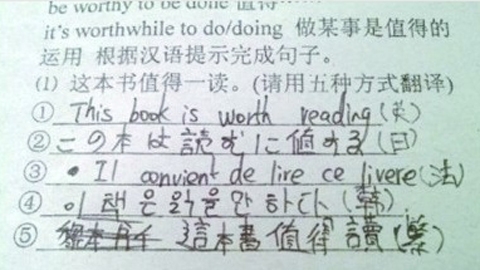 be worthy to be done 值得......
it's worthwhile to do/doing 做某事是值得的
运用 根据汉语提示完成句子。
(1) 这本书值得一读。(请用五种方式翻译)
① This book is worth reading(英)
② この本は読むに値する(日)
③ • Il convient de lire ce livere(法)
④ 이 책은 읽을만 하다(韩)
⑤ 這本書值得讀(繁)